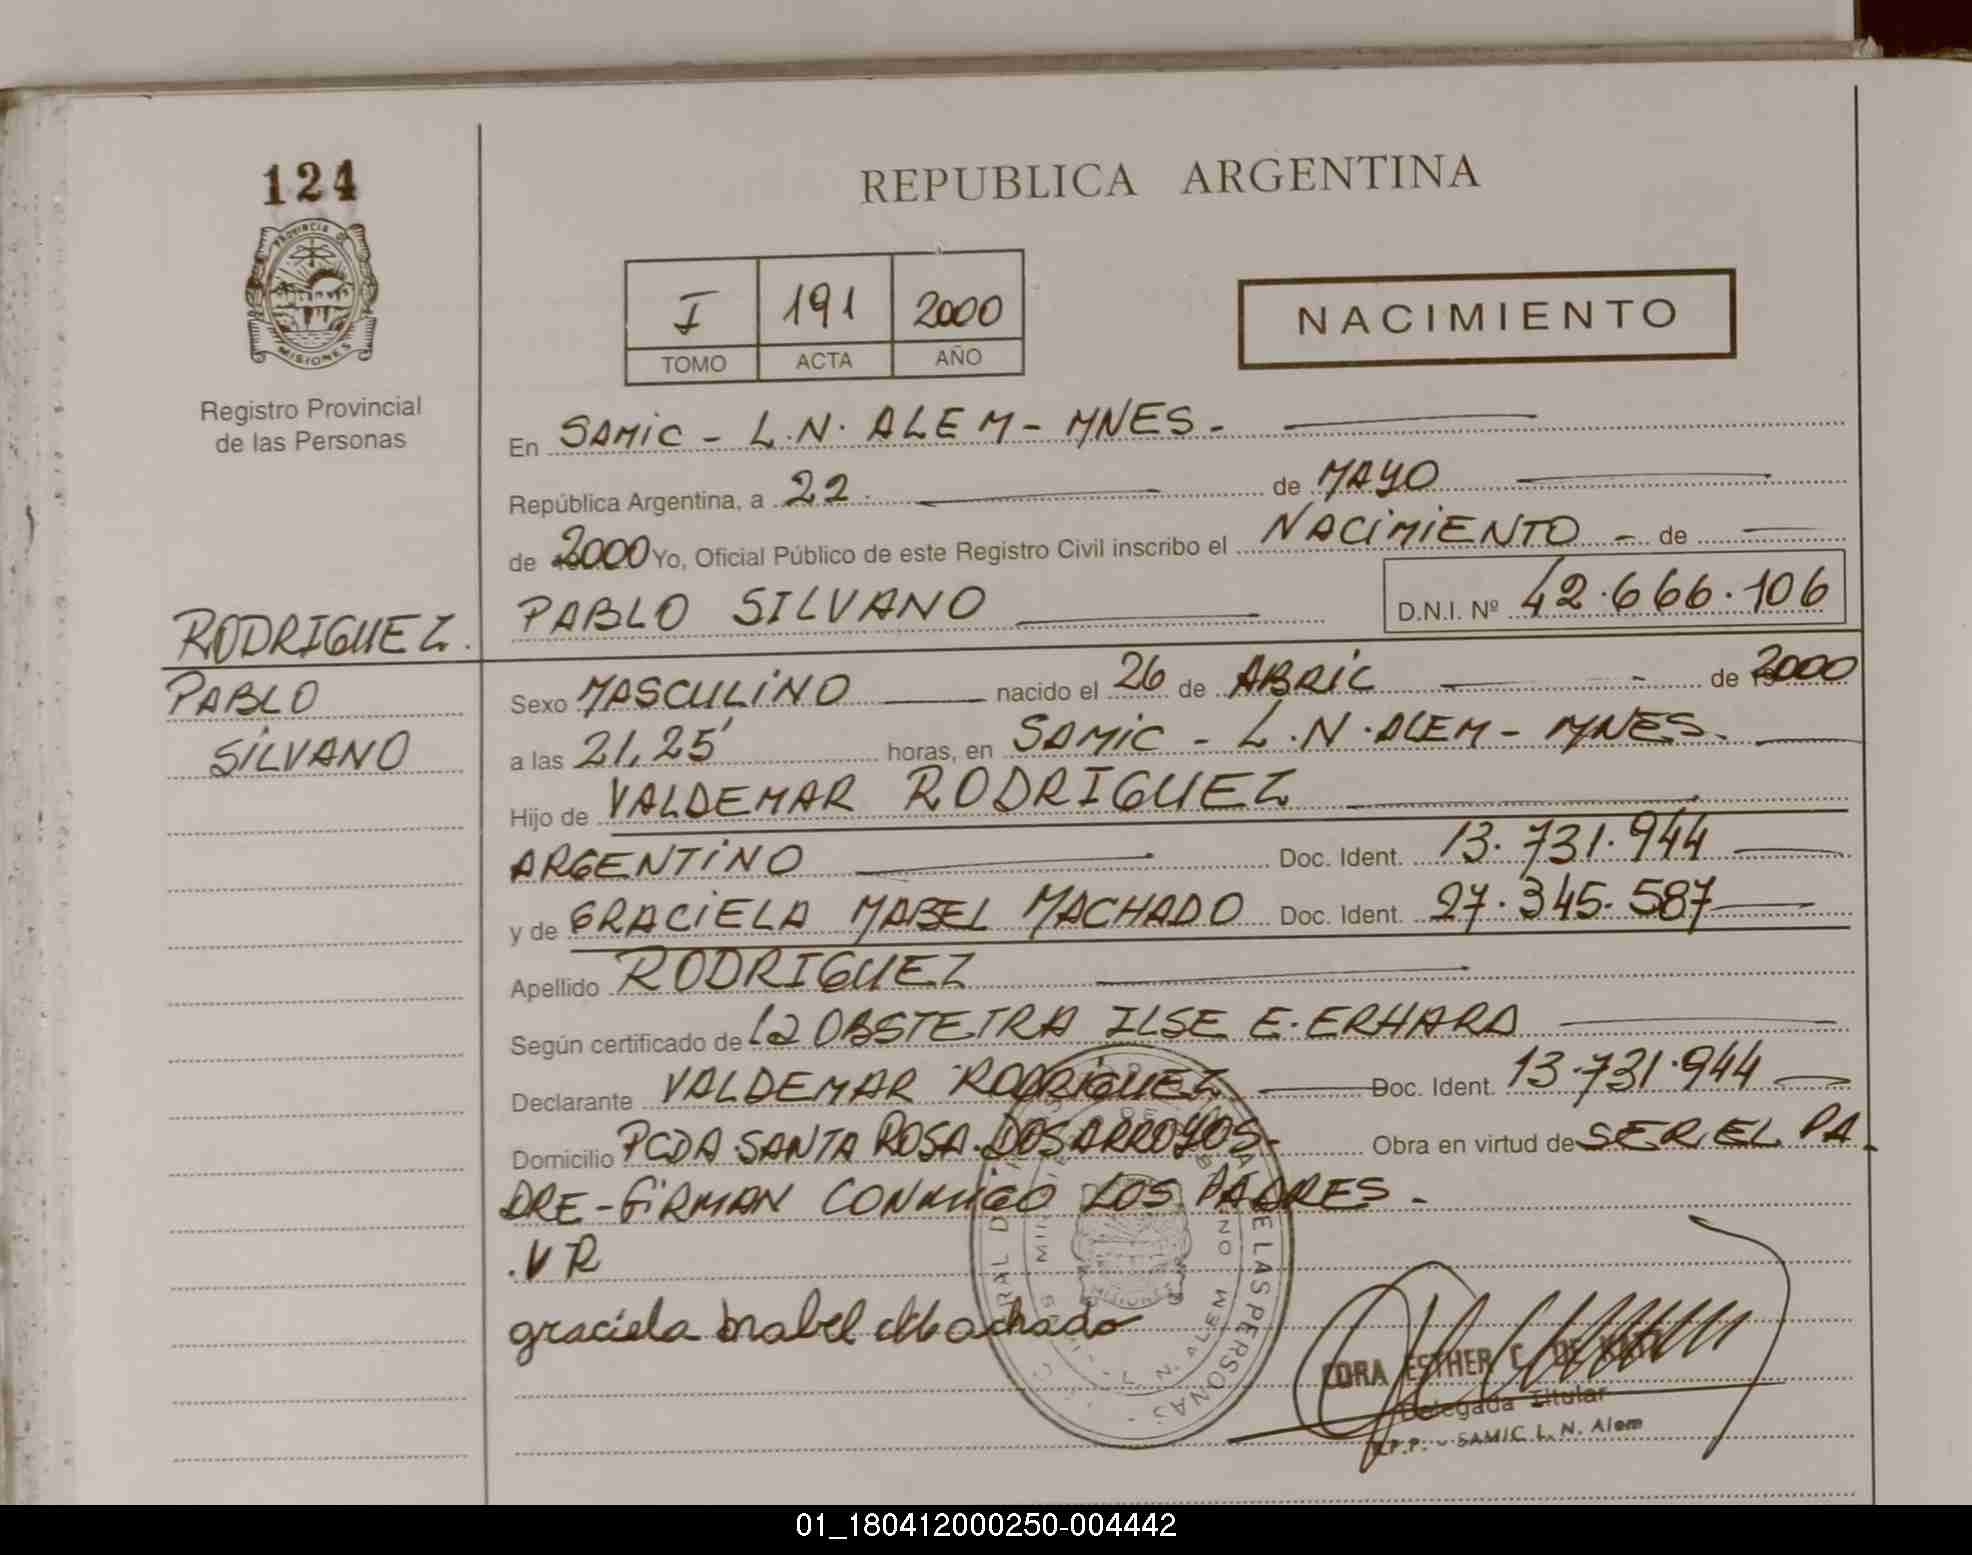 124
REPUBLICA ARGENTINA
PROVINCIA DE
MISIONES
Registro Provincial
de las Personas
I 191 2000
TOMO ACTA AÑO
NACIMIENTO
En SAMIC - L.N. ALEM - MNES.-
República Argentina, a 22 de MAYO
de 2000 Yo, Oficial Público de este Registro Civil inscribo el NACIMIENTO - de
PABLO SILVANO D.N.I. Nº 42.666.106
RODRIGUEZ.
PABLO
SILVANO
Sexo MASCULINO nacido el 26 de ABRIL de 2000
a las 21,25' horas, en SAMIC - L.N. ALEM - MNES.
Hijo de VALDEMAR RODRIGUEZ
ARGENTINO Doc. Ident. 13.731.944
y de GRACIELA MABEL MACHADO Doc. Ident. 27.345.587
Apellido RODRIGUEZ
Según certificado de la OBSTETRA ILSE E. ERHARD
Declarante VALDEMAR RODRIGUEZ Doc. Ident. 13.731.944
Domicilio PCDA SANTA ROSA. DOS ARROYOS- Obra en virtud de SER EL PA-
DRE - FIRMAN CONMIGO LOS PADRES -
.VR
graciela mabel Machado
DE LAS PERSONAS
L. N. ALEM
MISIONES
CORA ESTHER C. DE
Delegada Titular
R.P.P. - SAMIC L. N. Alem
01_180412000250-004442